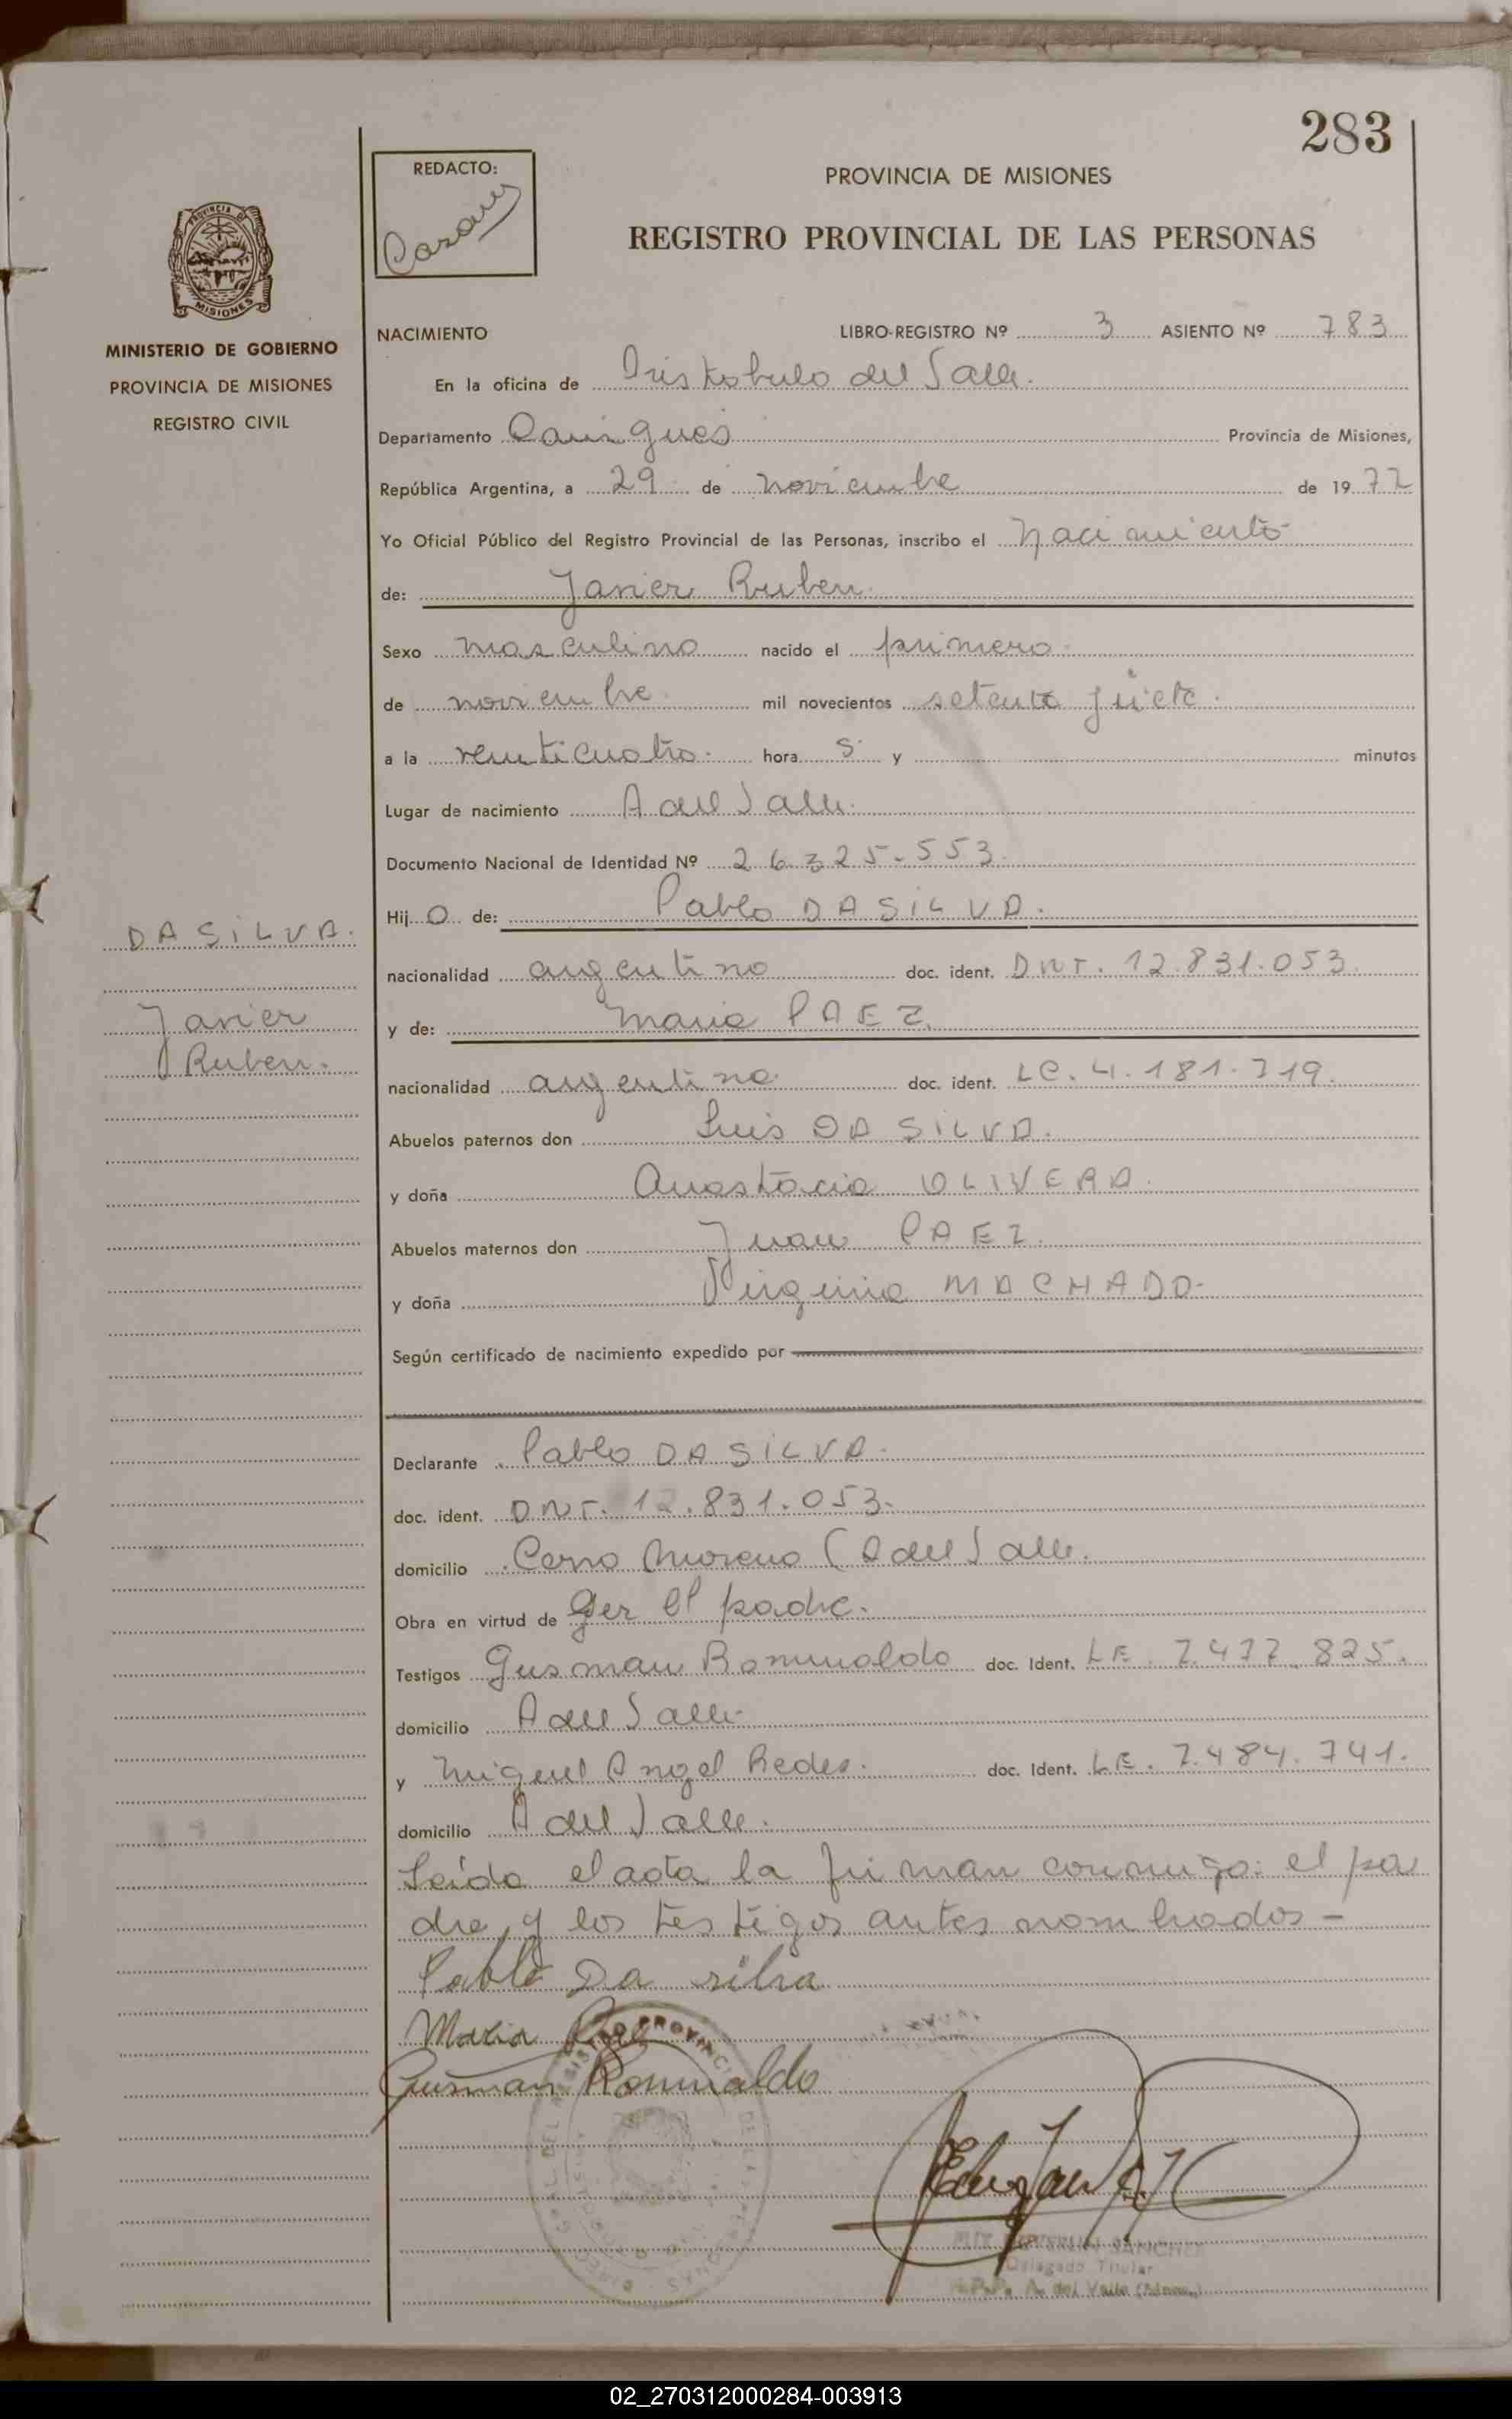 283
REDACTO:
PROVINCIA DE MISIONES
REGISTRO PROVINCIAL DE LAS PERSONAS
PROVINCIA DE
MISIONES
MINISTERIO DE GOBIERNO
PROVINCIA DE MISIONES
REGISTRO CIVIL
NACIMIENTO LIBRO-REGISTRO Nº 3 ASIENTO Nº 783
En la oficina de Aristobulo del Valle.
Departamento Cainguás Provincia de Misiones,
República Argentina, a 29 de noviembre de 19 77
Yo Oficial Público del Registro Provincial de las Personas, inscribo el nacimiento
de: Javier Ruben.
Sexo masculino nacido el primero
de noviembre mil novecientos setenta y siete.
a la veinticuatro. hora s y minutos
Lugar de nacimiento A del Valle.
Documento Nacional de Identidad Nº 26.325.553
Hij o de: Pablo DA SILVA.
nacionalidad argentino doc. ident. DNI. 12.831.053.
y de: Maria PAEZ.
nacionalidad argentina doc. ident. LC. 4.181.719.
Abuelos paternos don Luis DA SILVA.
y doña Anastacia OLIVERA.
Abuelos maternos don Juan PAEZ.
y doña Virginia MACHADO.
Según certificado de nacimiento expedido por
DA SILVA.
Javier
Ruben.
Declarante Pablo DA SILVA.
doc. ident. DNI. 12.831.053.
domicilio Cerro Moreno (A del Valle.
Obra en virtud de ser el padre.
Testigos Gusman Romualdo doc. Ident. LE. 7.477.825.
domicilio A del Valle
y Miguel Angel Redes. doc. Ident. LE. 7.484.741.
domicilio A del Valle.
Leída el acta la firman conmigo: el pa
dre, y los testigos antes nombrados -
Pablo Da silva
Maria
Gusman Romualdo
SANCHEZ
Delegado Titular
A. del Valle (Mnes.)
02_270312000284-003913